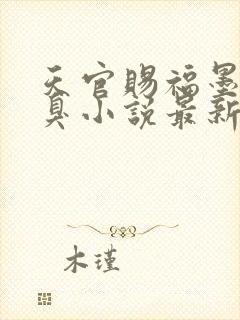 天官赐福墨
臭小说最新
木瑾